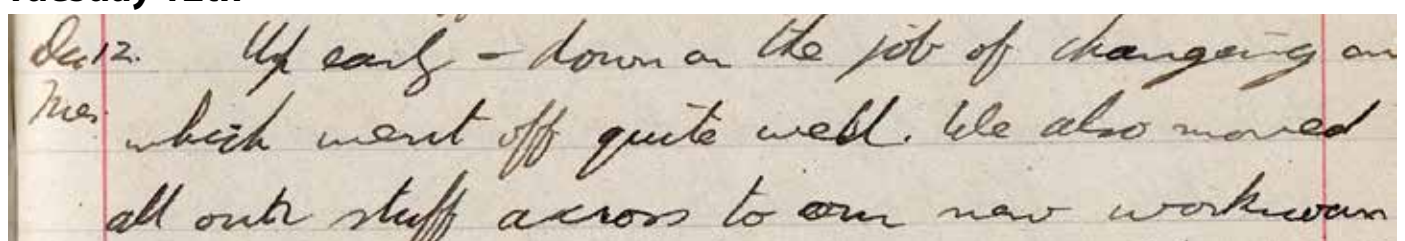 Dec 12. Up early - down on the job of changeing
Tues. which went off quite well. We also moved
all our stuff across to our new